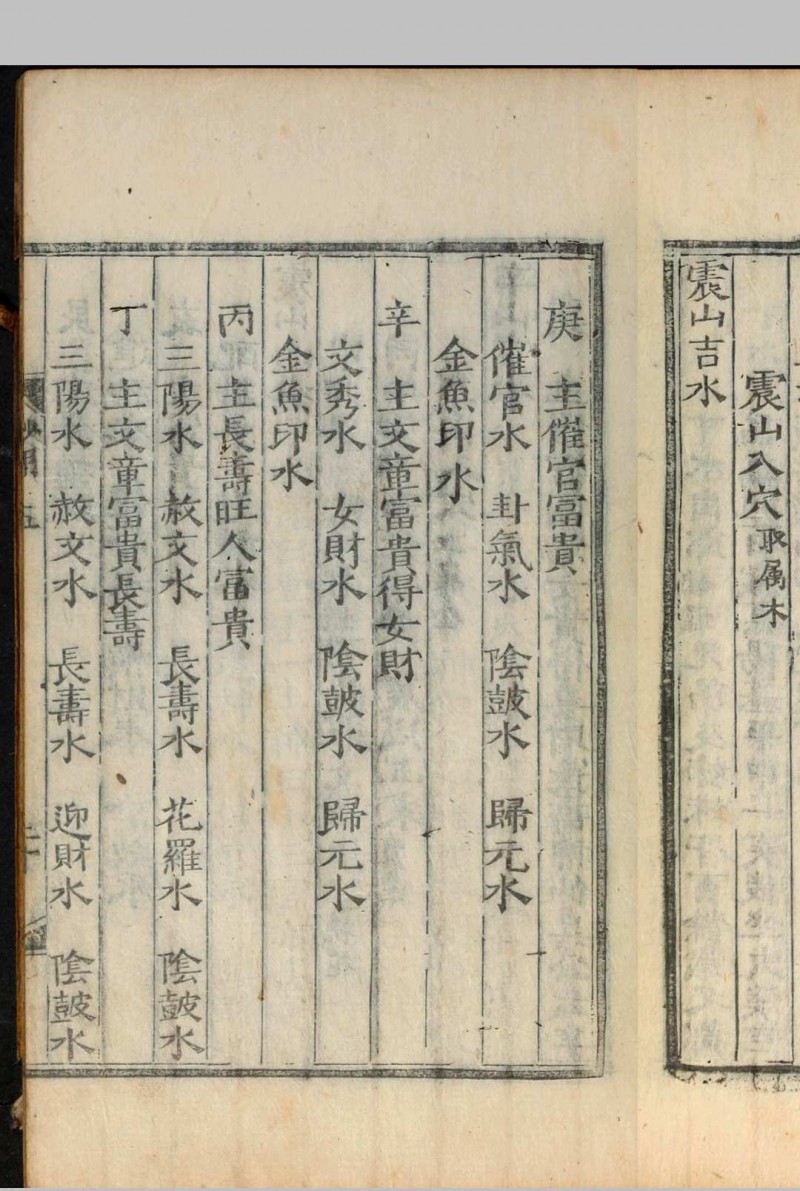 震山入穴取属木
震山吉水
庚 主催官富貴
催官水 卦氣水 陰皷水 歸元水
金魚印水
辛 主文章富貴得女財
文秀水 女財水 陰皷水 歸元水
金魚印水
丙 主長壽旺人富貴
三陽水 赦文水 長壽水 花羅水 陰皷水
丁 主文章富貴長壽
三陽水 赦文水 長壽水 迎財水 陰皷水